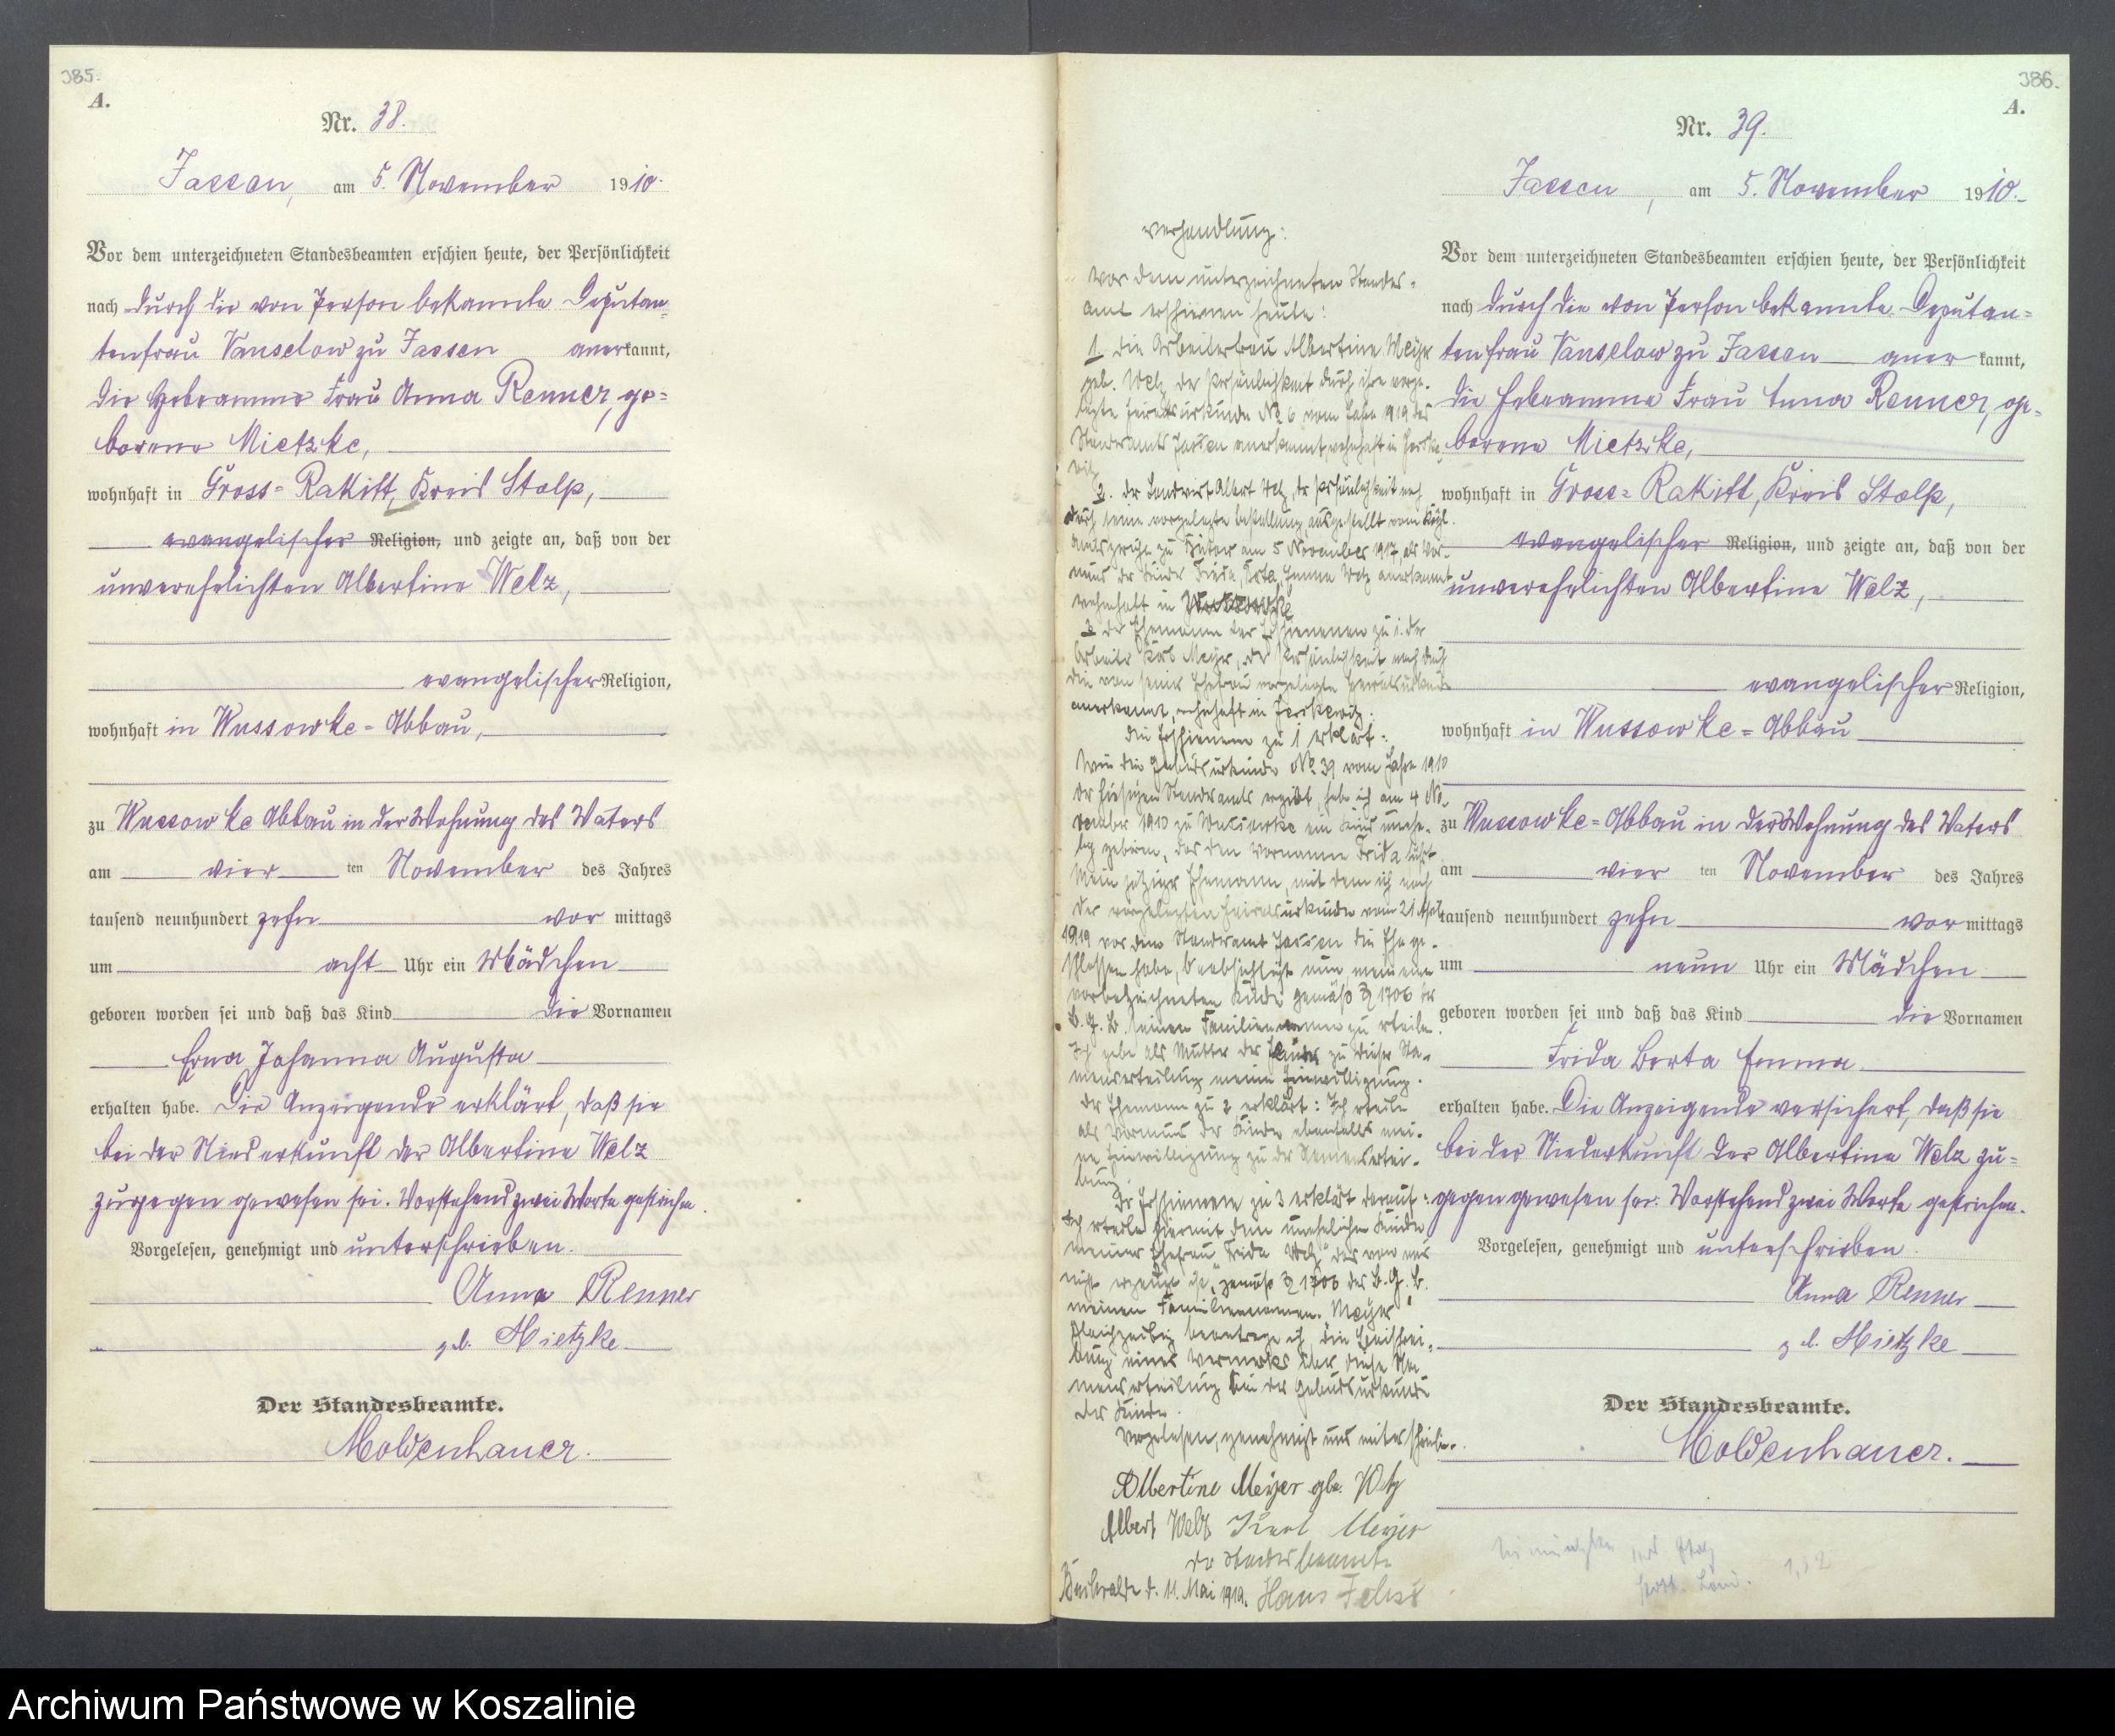 385.
A.
Nr. 38.
Jassen, am 5. November 1910.
Vor dem unterzeichneten Standesbeamten erschien heute, der Persönlichkeit
nach durch die von Person bekannte Deputan=
tenfrau Vanselow zu Jassen anerkannt,
die Hebeamme Frau Anna Renner, ge=
borene Mietzke,
wohnhaft in Gross=Rakitt, Kreis Stolp,
evangelischer Religion, und zeigte an, daß von der
unverehelichten Albertine Welz,
evangelischer Religion,
wohnhaft in Wussowke=Abbau,
zu Wussowke Abbau in der Wohnung des Vaters
am vier ten November des Jahres
tausend neunhundert zehn vor mittags
um acht Uhr ein Mädchen
geboren worden sei und daß das Kind die Vornamen
Erna Johanna Augusta
erhalten habe. Die Anzeigende erklärt, daß sie
bei der Niederkunft der Albertine Welz
zugegen gewesen sei. Vorstehend zwei Worte gestrichen.
Vorgelesen, genehmigt und unterschrieben.
Anna Renner
geb. Mietzke
Der Standesbeamte.
Moldenhauer.
Verhandlung:
Vor dem unterzeichneten Standes=
amt erschienen heute:
1. die Arbeiterfrau Albertine Meyer
geb. Welz, der Persönlichkeit durch ihre vorge=
legte Heiratsurkunde No 6 vom Jahre 1919 des
Standesamts Jassen anerkannt, wohnhaft in
2. der Landwirt Albert Welz, der Persönlichkeit nach
durch seine vorgelegte Bestallung ausgestellt vom Kgl.
Amtsgericht zu Bütow am 5 November 1917, als Vor=
mund der Kinder Frieda, Berta, Emma Welz anerkannt
wohnhaft in Wussowke
3. der Ehemann der Erschienenen zu 1. der
Arbeiter Karl Meyer, der Persönlichkeit nach durch
die von seiner Ehefrau vorgelegte Heiratsurkunde
anerkannt, wohnhaft in
Die Erschienene zu 1 erklärt:
Wie die Geburtsurkunde No 39 vom Jahre 1910
des hiesigen Standesamts ergibt, habe ich am 4 No=
vember 1910 zu Wussowke ein Kind unehe=
lich geboren, das den Vornamen Frida führt.
Mein jetziger Ehemann, mit dem ich nach
der vorgelegten Heiratsurkunde vom 21 April
1919 vor dem Standesamt Jassen die Ehe ge=
schlossen habe, beabsichtigt nun meinem
vorbezeichneten Kinde gemäß § 1706 des
B.G.B. seinen Familiennamen zu erteilen.
Ich gebe als Mutter des Kindes zu dieser Na=
menserteilung meine Einwilligung.
Der Ehemann zu 2 erklärt: Ich erteile
als Vormund der Kinder ebenfalls mei=
ne Einwilligung zu der Namensertei=
lung.
Der Erschienene zu 3 erklärt darauf:
Ich erteile hiermit dem unehelichen Kinde
meiner Ehefrau "Frida Welz" das von mir
nicht erzeugt ist, gemäß § 1706 des B.G.B.
meinen Familiennamen "Meyer"
Gleichzeitig beantrage ich die Beischrei=
bung eines Vermerks über diese Na=
menserteilung bei der Geburtsurkunde
des Kindes.
Vorgelesen, genehmigt und unterschrieben.
Albertine Meyer gbe. Welz
Albert Welz Karl Meyer
Der Standesbeamte
Buchwalde d. 11. Mai 1919. Hans
386.
A.
Nr. 39.
Jassen, am 5. November 1910.
Vor dem unterzeichneten Standesbeamten erschien heute, der Persönlichkeit
nach durch die von Person bekannte Deputan=
tenfrau Vanselow zu Jassen anerkannt,
die Hebeamme Frau Anna Renner, ge=
borene Mietzke,
wohnhaft in Gross=Rakitt, Kreis Stolp,
evangelischer Religion, und zeigte an, daß von der
unverehelichten Albertine Welz,
evangelischer Religion,
wohnhaft in Wussowke=Abbau
zu Wussowke=Abbau in der Wohnung des Vaters
am vier ten November des Jahres
tausend neunhundert zehn vor mittags
um neun Uhr ein Mädchen
geboren worden sei und daß das Kind die Vornamen
Frida Berta Emma
erhalten habe. Die Anzeigende versichert, daß sie
bei der Niederkunft der Albertine Welz zu=
gegen gewesen sei. Vorstehend zwei Worte gestrichen.
Vorgelesen, genehmigt und unterschrieben.
Anna Renner
geb. Mietzke
Der Standesbeamte.
Moldenhauer.
Archiwum Państwowe w Koszalinie